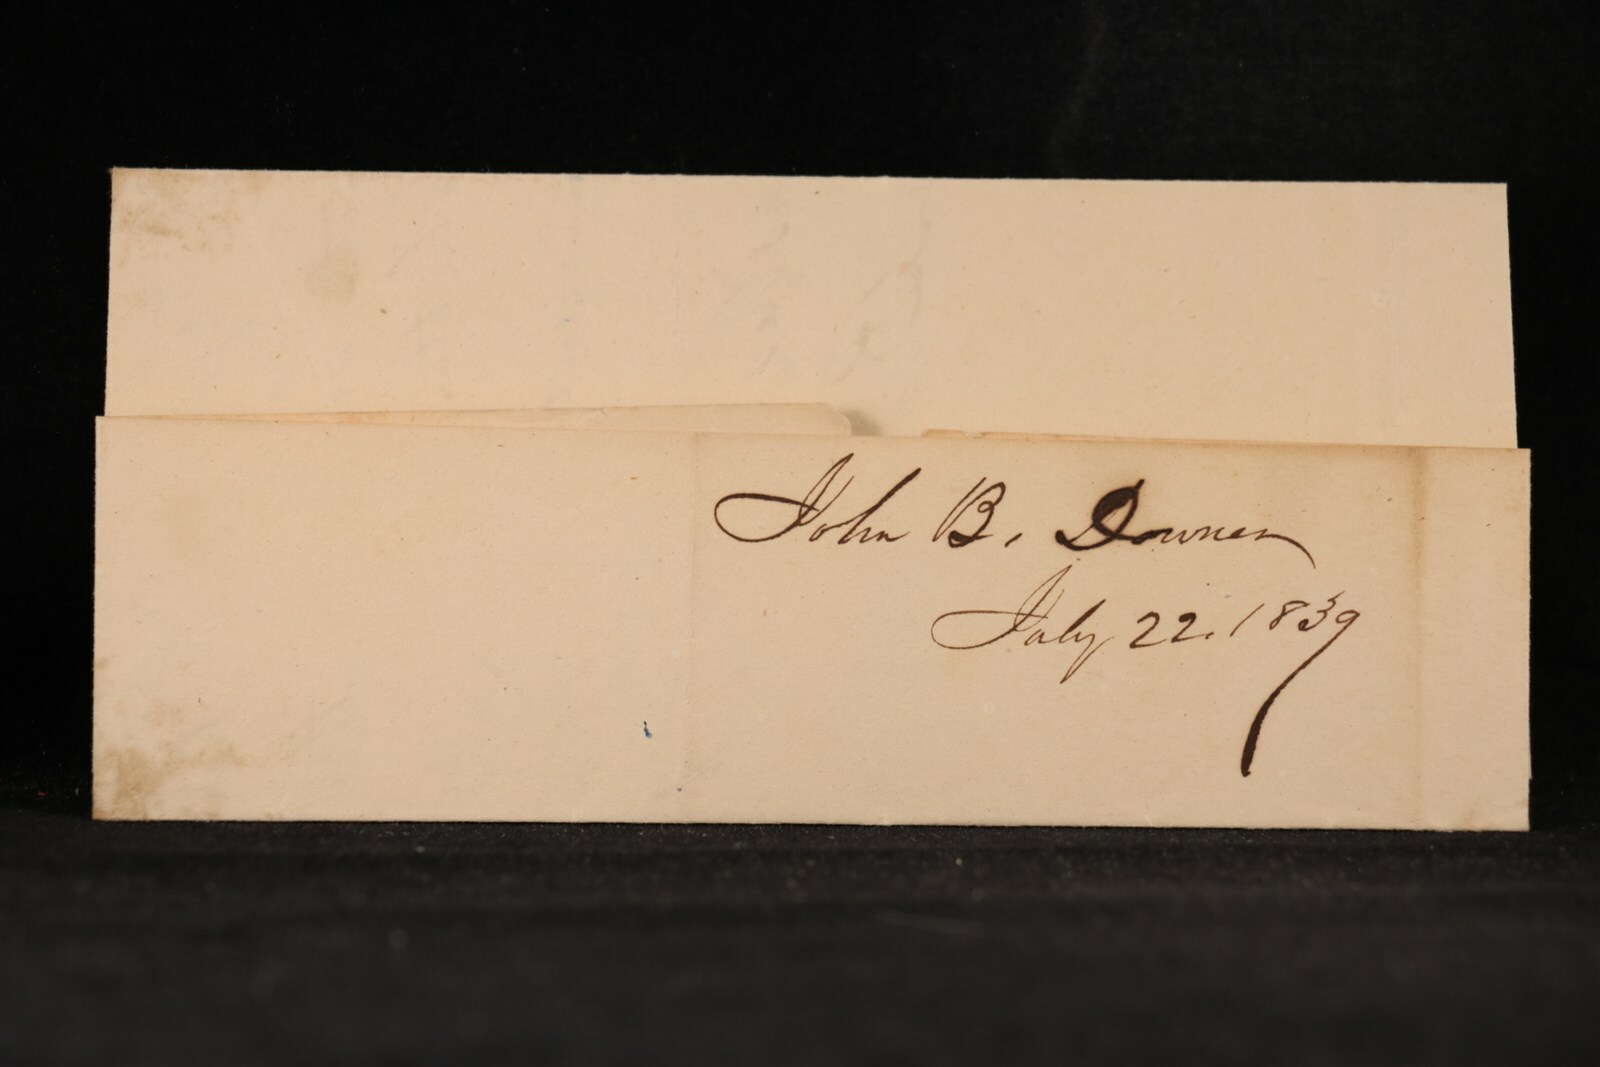 John B. Downer
July 22. 1839